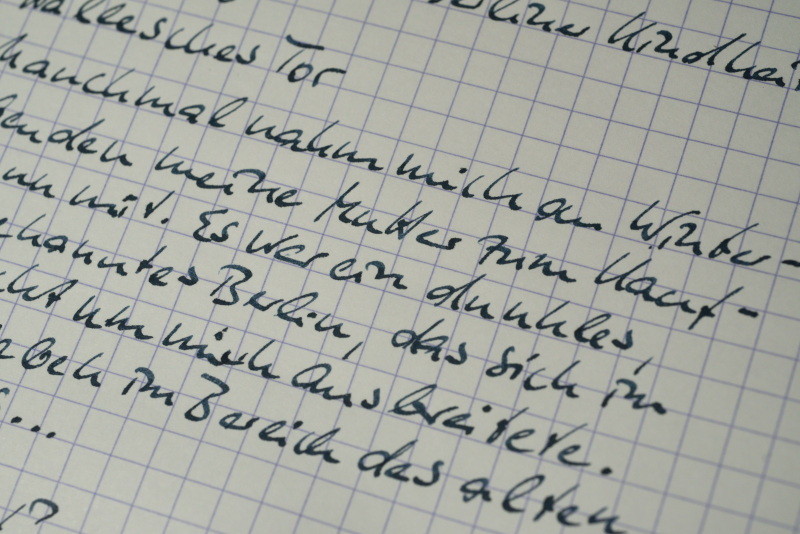 liner Kindheit
allesches Tor
Manchmal nahm mich an Winter-
benden meine Mutter zum Kauf-
nn mit. Es war ein dunkles,
ekanntes Berlin, das sich im
cht um mich ausbreitete.
ieben im Bereich des alten
...
?